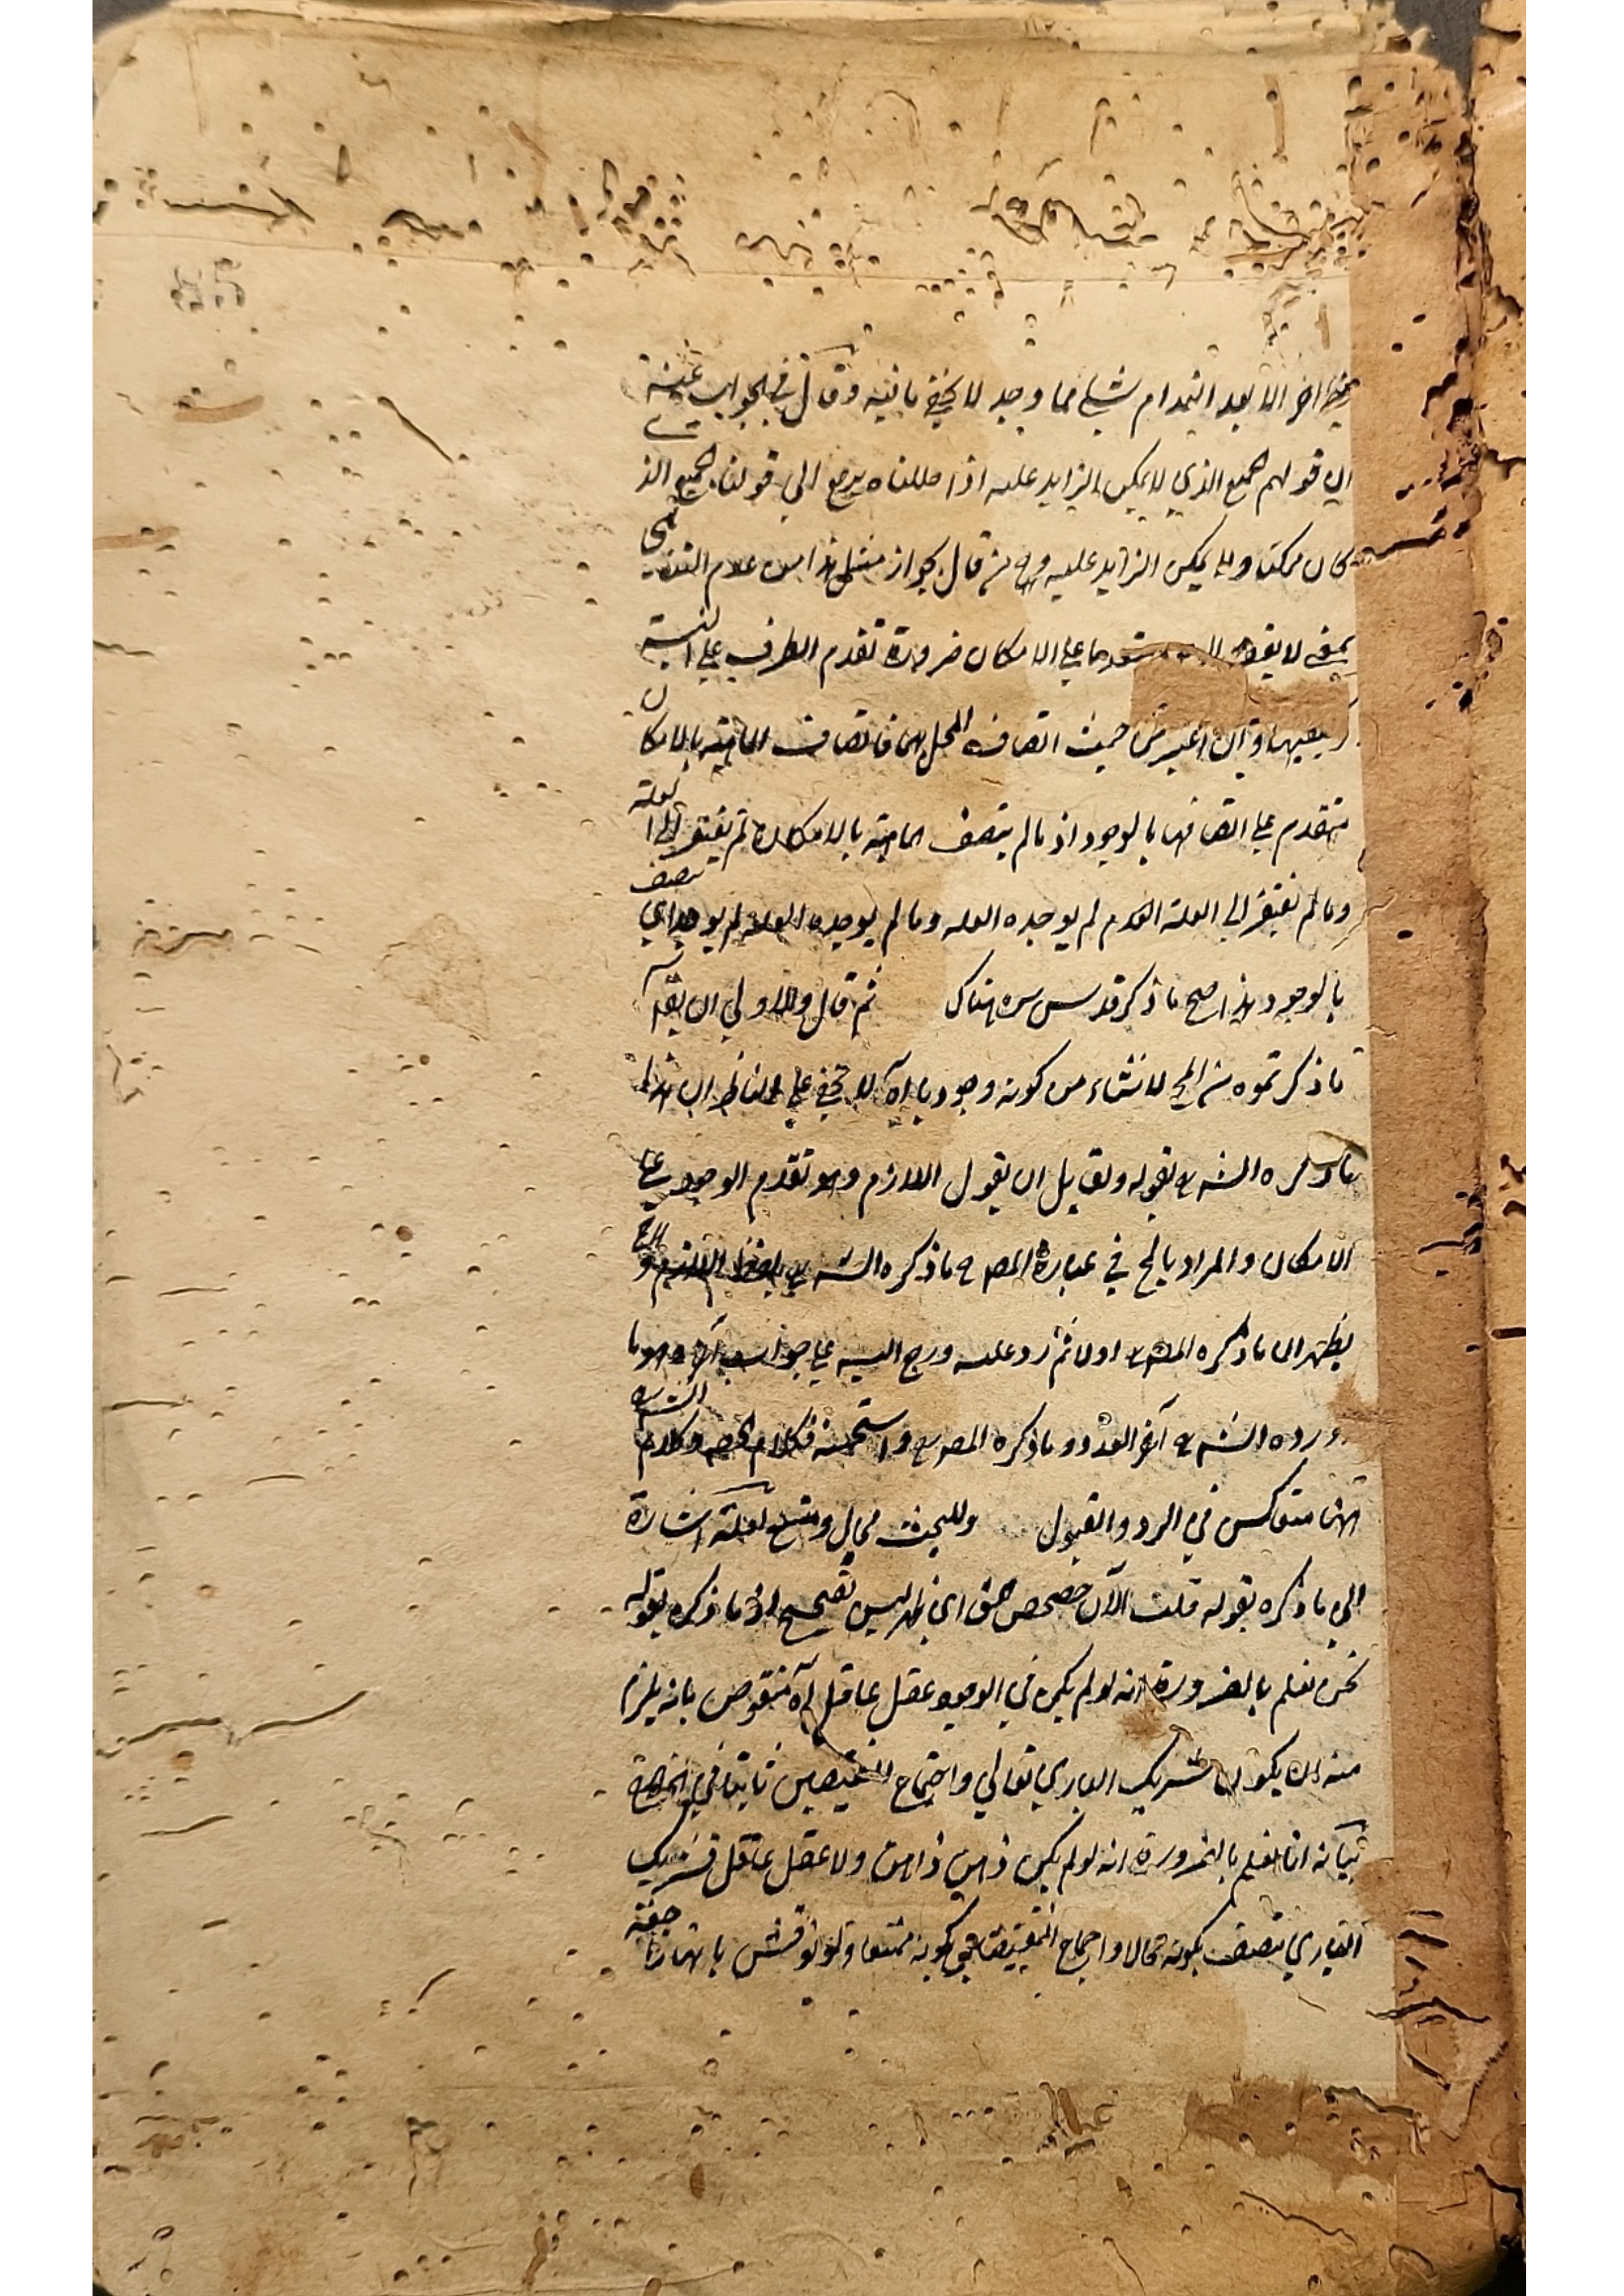 اخر الا بعد انهدام شيء مما وجد لا يخفى ما فيه وقال في الجواب عنه
ان قولهم الجميع الذي لا يمكن الزايد عليه اذا حللناه يرجع الي قولنا الجميع الذي
كان مركبا ولا يمكن الزايد عليه ومن قال بجواز مثل هذا من عدم التناهي
بمعنى لا يقف على الامكان ضرورة تقدم الطرف على النسبة
وان اعتبر من حيث اتصاف المحل بهما فاتصاف الماهية بالامكان
متقدم على اتصافها بالوجود اذ ما لم يتصف الماهية بالامكان لم يفتقر الى العلة
وما لم يفتقر الي العلة لم يوجده العلة وما لم يوجده العلة لم يوجد اي تتصف
بالوجود هذا صح ما ذكر قدس سره هناك ثم قال والاولي ان يقال
ما ذكرتموه من المح لا نشاء من كونه وجوديا اه لا يخفى على الناظر ان هذا
ما ذكره الشه بقوله ولقايل ان يقول اللازم وهو تقدم الوجود على
الامكان والمراد بالمح في عبارة المصه ما ذكره الشه بلفظ اللازم و
يظهر ان ما ذكره المصه اولا ثم رد عليه ورجح اليه على جواب آخر هو ما
ورده الشه آخرا وما ذكره المصه واستحسنه فكلام المصه وكلام الشه
ههنا متعاكس في الرد والقبول وللبحث مجال ومتسع لعله اشارة
الي ما ذكره بقوله قلت الآن حصحص الحق اي ظهر ليس بصحيح اذ ما ذكره بقوله
نحن نعلم بالضرورة انه لو لم يكن في الوجود عقل عاقل اه منقوض بانه يلزم
منه ان يكون شريك الباري تعالي واجتماع النقيضين ثابتا في الخارج
بيانه انا نعلم بالضرورة انه لو لم يكن ذهن ذاهن ولا عقل عاقل فشريك
الباري يتصف بكونه محالا واجتماع النقيضين بكونه ممتنعا ولو نوقش بانهما